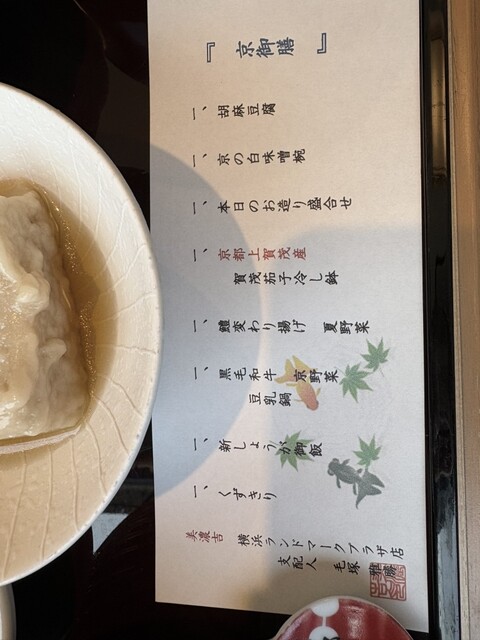 『京御膳』
一、胡麻豆腐
一、京の白味噌椀
一、本日のお造り盛合せ
一、京都上賀茂産
賀茂茄子冷し鉢
一、鱧変わり揚げ 夏野菜
一、黒毛和牛 京野菜
豆乳鍋
一、新しょうが御飯
一、くずきり
美濃吉 横浜ランドマークプラザ店
支配人 毛塚 雅勝